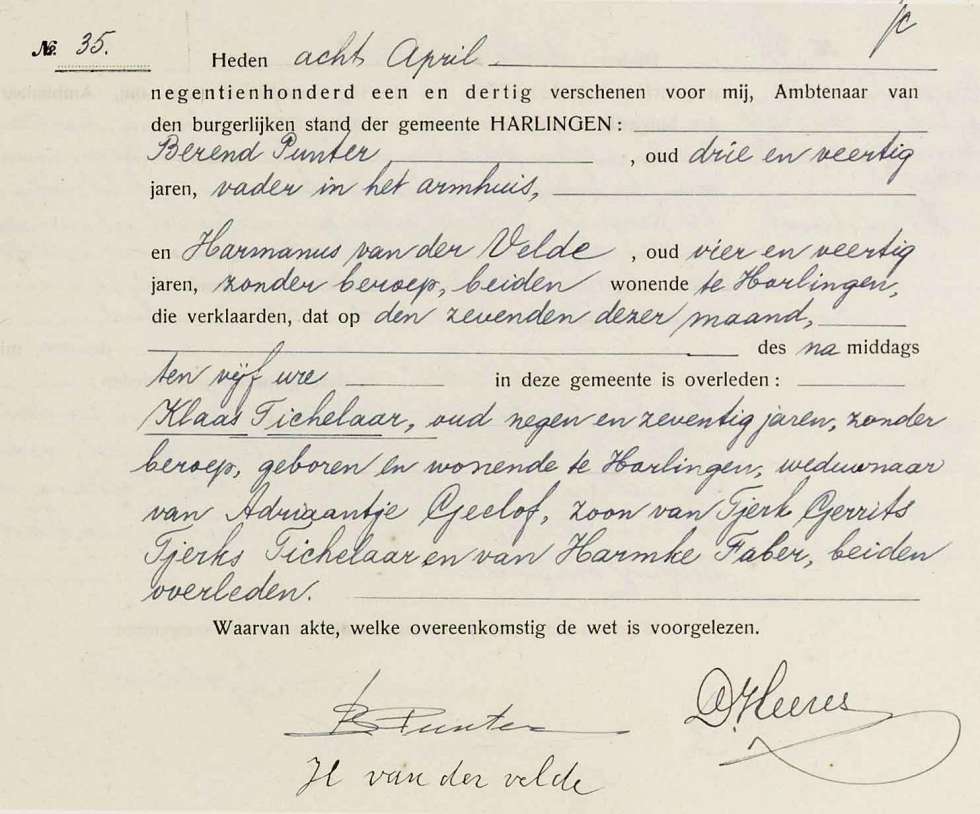 № 35.
Heden acht April
negentienhonderd een en dertig verschenen voor mij, Ambtenaar van
den burgerlijken stand der gemeente HARLINGEN:
Berend Punter, oud drie en veertig
jaren, vader in het armhuis,
en Harmanus van der Velde, oud vier en veertig
jaren, zonder beroep, beiden wonende te Harlingen,
die verklaarden, dat op den zevenden dezer maand,
des na middags
ten vijf ure in deze gemeente is overleden:
Klaas Tichelaar, oud negen en zeventig jaren, zonder
beroep, geboren en wonende te Harlingen, weduwnaar
van Adriaantje Geelof, zoon van Tjerk Gerrits
Tjerks Tichelaar en van Harmke Faber, beiden
overleden.
Waarvan akte, welke overeenkomstig de wet is voorgelezen.
B Punter
H van der velde